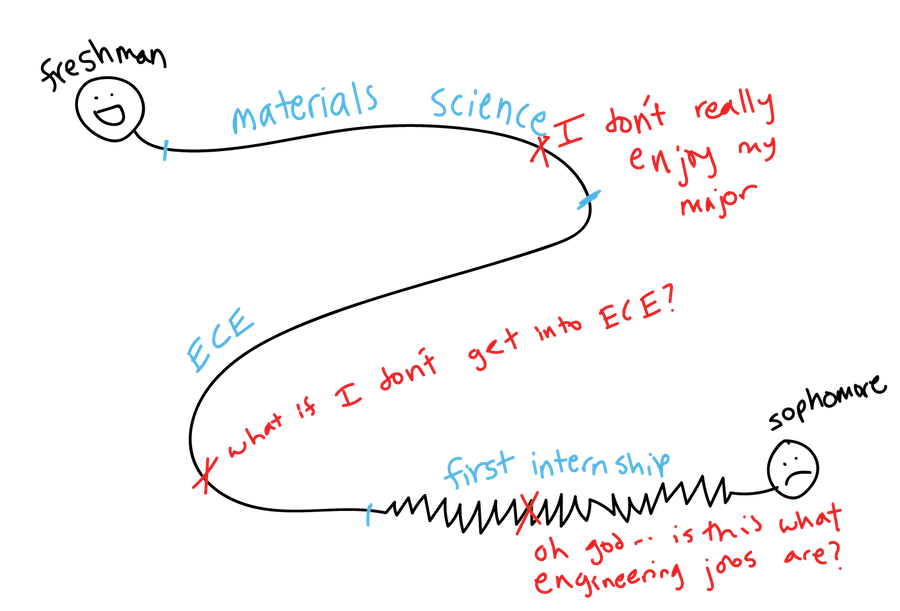 freshman
materials science
I don't really
enjoy my
major
ECE
what if I don't get into ECE?
sophomore
first internship
oh god... is this what
engineering jobs are?